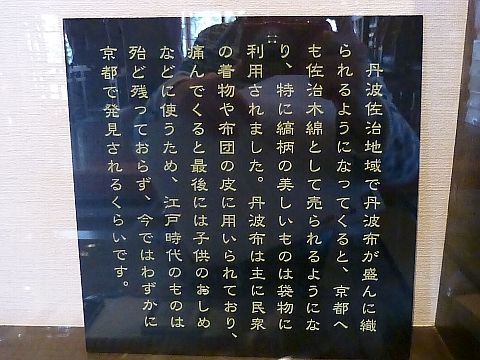 丹波佐治地域で丹波布が盛んに織
られるようになってくると、京都へ
も佐治木綿として売られるようにな
り、特に縞柄の美しいものは袋物に
利用されました。丹波布は主に民衆
の着物や布団の皮に用いられており、
痛んでくると最後には子供のおしめ
などに使うため、江戸時代のものは
殆ど残っておらず、今ではわずかに
京都で発見されるくらいです。